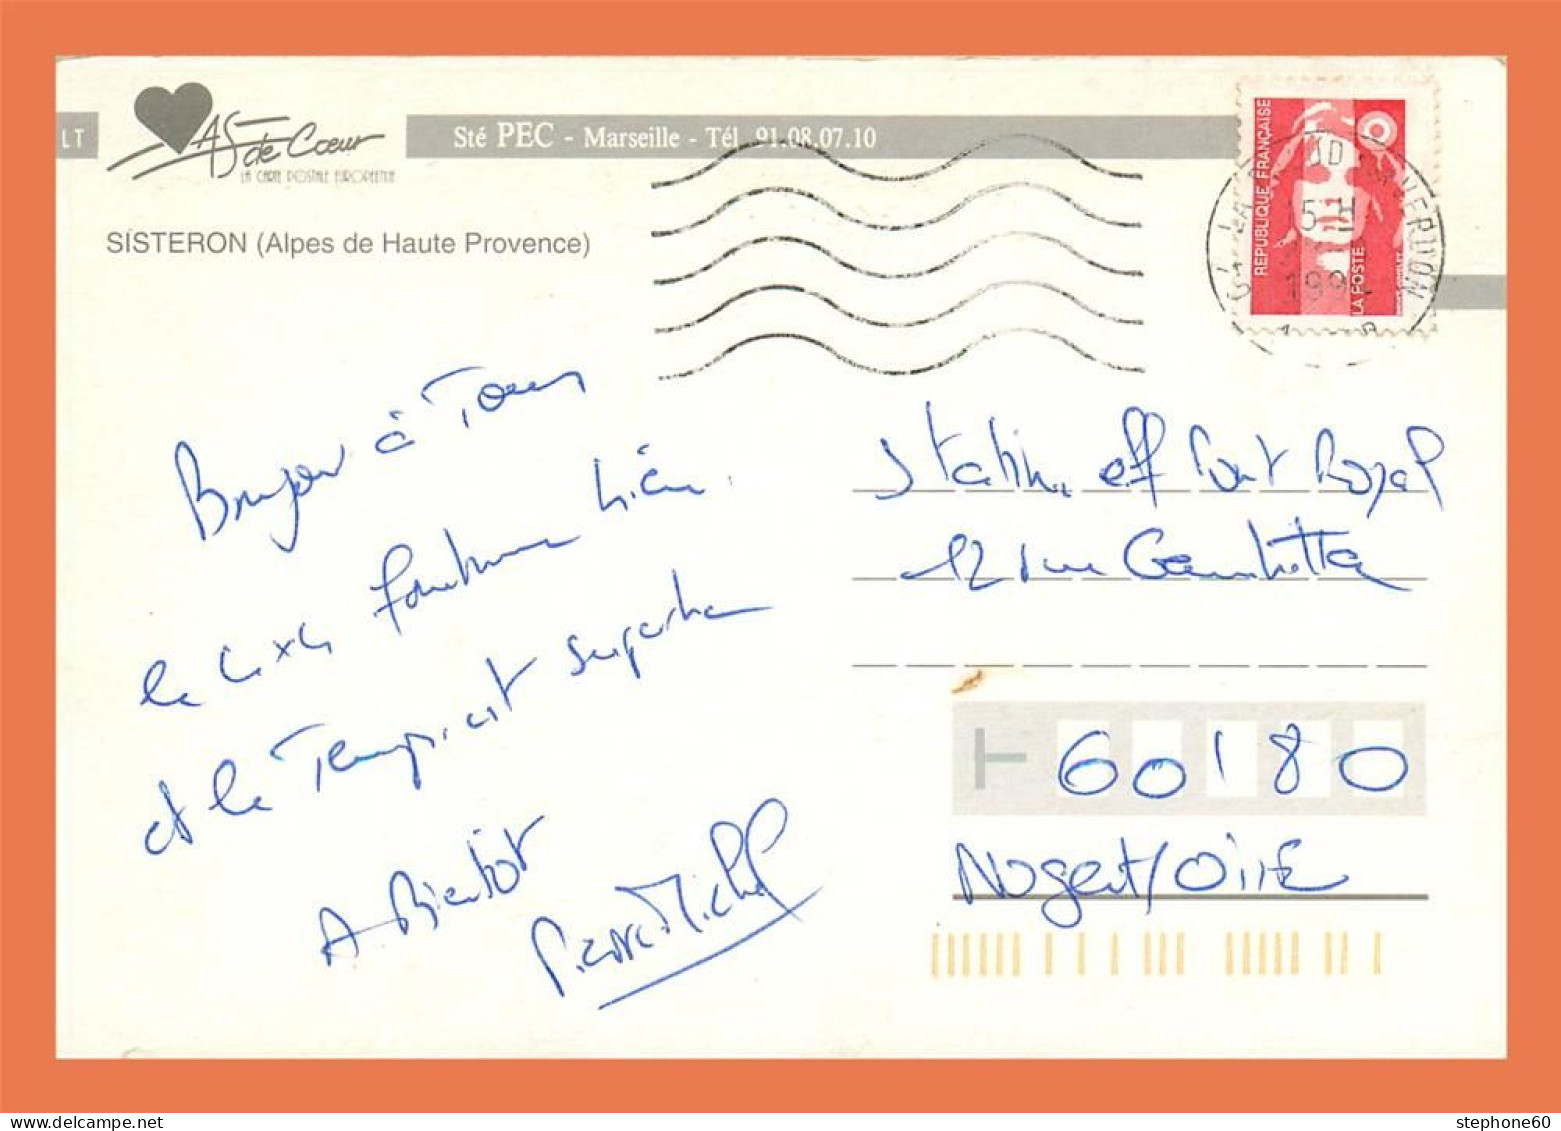 LT
As de Cœur
LA CARTE POSTALE EUROPEENNE
Sté PEC - Marseille - Tél. 91.08.07.10
SISTERON (Alpes de Haute Provence)
REPUBLIQUE FRANÇAISE
LA POSTE
VERDON
15 H
199
Bonjour à Tous
fonctionne bien.
et le Temps est superbe
A Bientôt
Pierre Michel
Station elf Pont Royal
12 rue Gambetta
60180
Nogent/OISE
stephone60